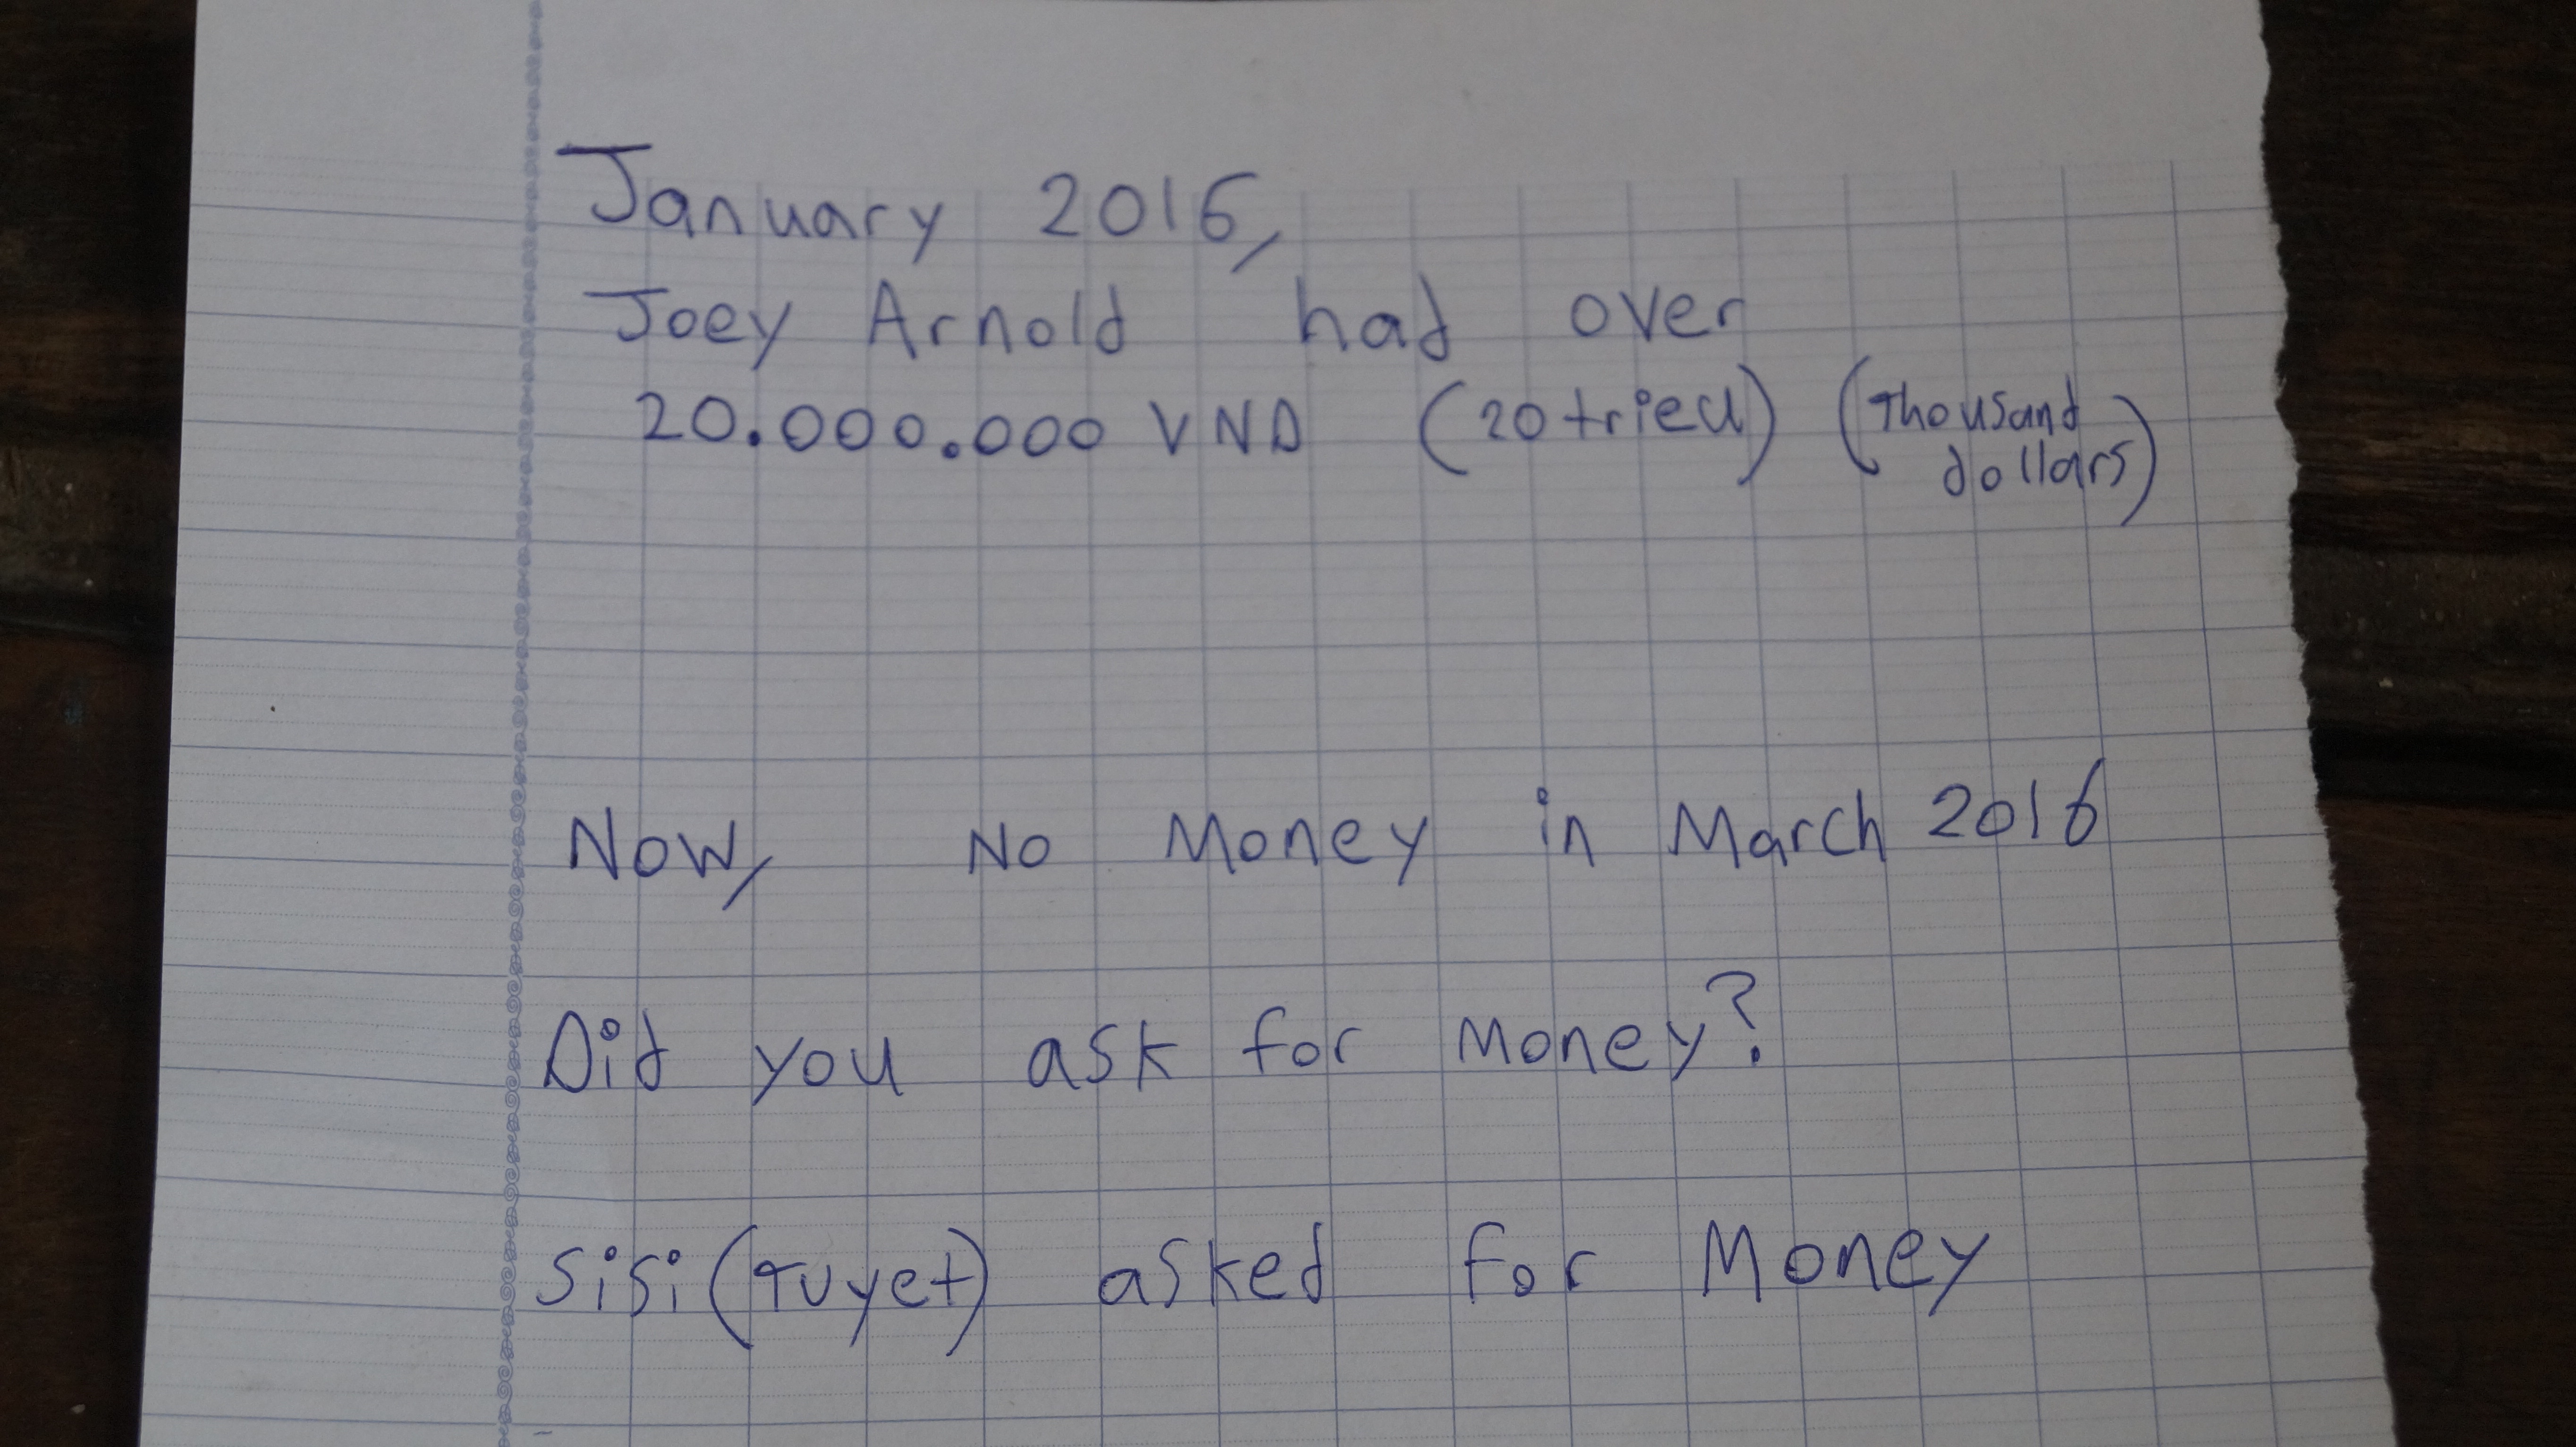 January 2016,
Joey Arnold had over
20.000.000 VND (20 trieu) (Thousand
dollars)
Now, No Money in March 2016
Did you ask for Money?
Sisi (Tuyet) asked for Money